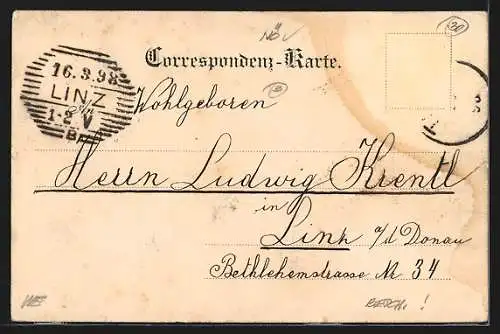 NÖ
30
Correspondenz-Karte.
16.3.98
LINZ
1-2 V
Wohlgeboren
Herrn Ludwig Krentl
in
Linz a/d Donau
Bethlehemstrasse Nr 34